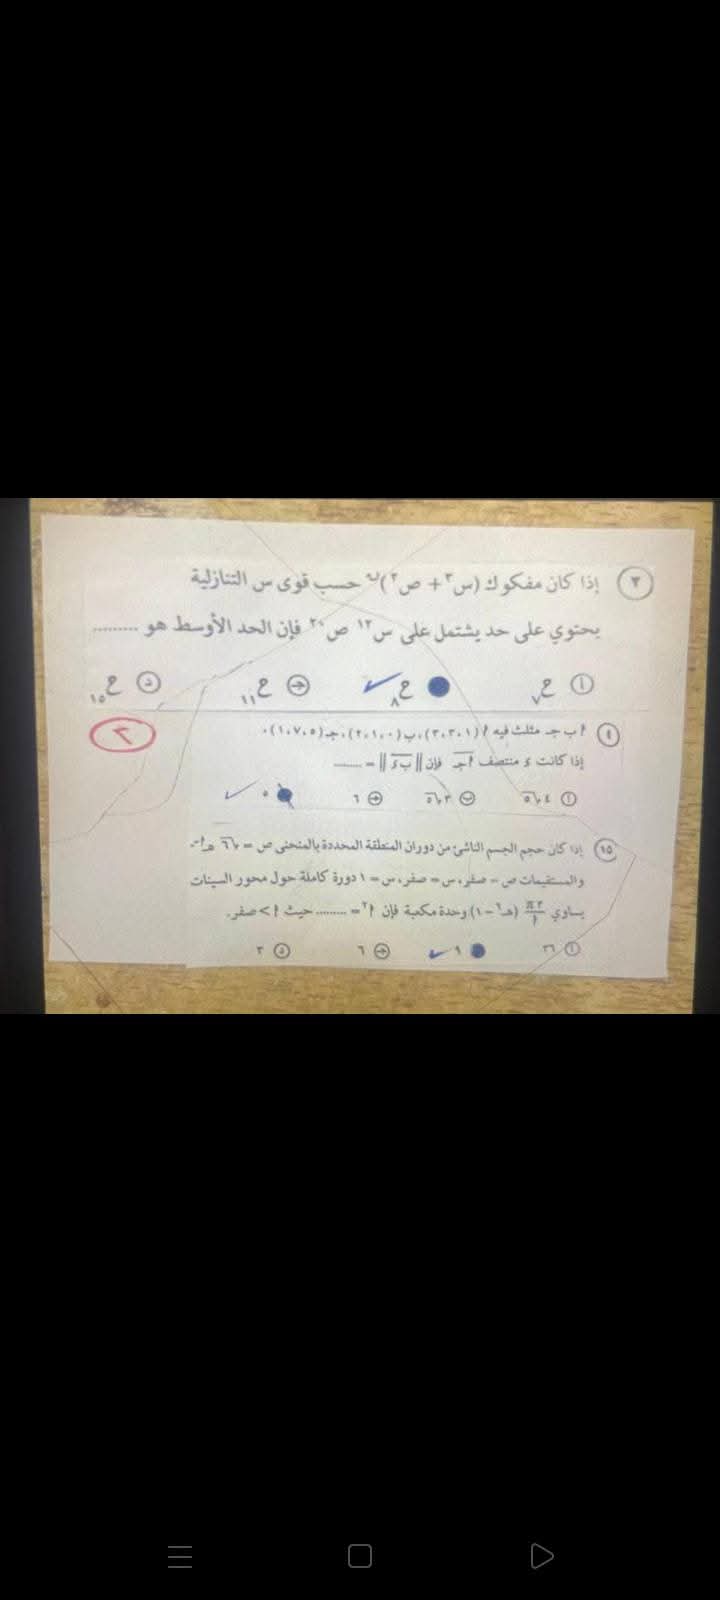 ٣ إذا كان مفكوك (س٣ + ص٢)ن حسب قوى س التنازلية
يحتوي على حد يشتمل على س١٢ ص٢٠ فإن الحد الأوسط هو .........
أ ح٧ ح٨ ج ح١١ د ح١٥
٤ أ ب جـ مثلث فيه أ (١،٣،٣)، ب (٠،١،٢)، جـ (٥،٧،١)،
٣
إذا كانت ء منتصف أجـ فإن ||بء|| = .........
أ ٤√٥ ب ٣√٥ ج ٦ ٥
١٥ إذا كان حجم الجسم الناشئ من دوران المنطقة المحددة بالمنحنى ص = √٦ هـأس
والمستقيمات ص = صفر، س = صفر، س = ١ دورة كاملة حول محور السينات
يساوي ٣π/أ (هـ٦ -١) وحدة مكعبة فإن أ٢ = ......... حيث أ > صفر.
أ ٣٦ ٩ ج ٦ د ٣